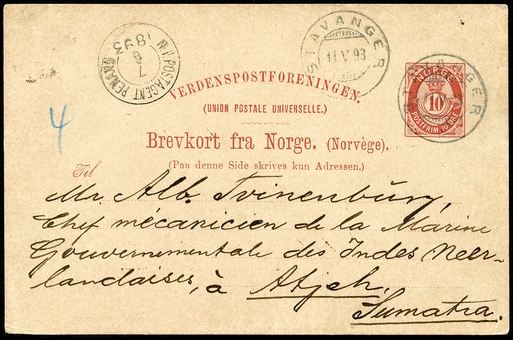 STAVANGER
11 V. 93
N. I. POSTAGENT PENANG
7
6
1893
VERDENSPOSTFORENINGEN.
(UNION POSTALE UNIVERSELLE.)
Brevkort fra Norge. (Norvège).
(Paa denne Side skrives kun Adressen.)
NORGE
10
POSTFRIM 10 ØRE
STAVANGER
4
Til
Mr. Alb. Tvinenburg,
Chef mécanicien de la Marine
Gouvernementale des Indes Neer-
landaises, à Atjeh.
Sumatra.